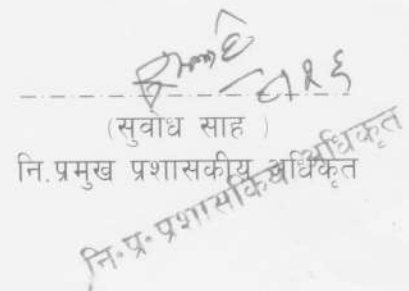 (सुवोध साह )
नि.प्रमुख प्रशासकीय अधिकृत
नि.प्र. प्रशासकिय अधिकृत